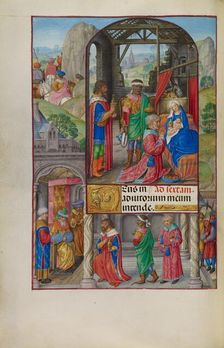 Deus in ad sextam
adiutorium meum
intende.